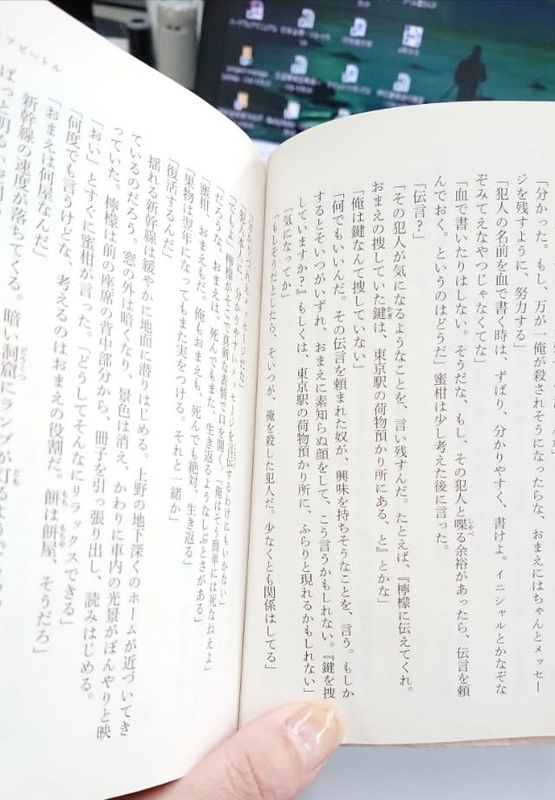 「分かった。もし、万が一俺が殺されそうになったらな、おまえにはちゃんとメッセー
ジを残すように、努力する」
「犯人の名前を血で書く時は、ずばり、分かりやすく、書けよ。イニシャルとかなぞな
ぞみてえなやつじゃなくてな」
「血で書いたりはしない。そうだな、もし、その犯人と喋る余裕があったら、伝言を頼
んでおく。というのはどうだ」蜜柑は少し考えた後に言った。
「伝言？」
「その犯人が気になるようなことを、言い残すんだ。たとえば、『檸檬に伝えてくれ。
おまえの捜していた鍵は、東京駅の荷物預かり所にある、と』とかな」
「俺は鍵なんて捜していない」
「何でもいいんだ。その伝言を頼まれた奴が、興味を持ちそうなことを、言う。もしか
するとそいつがいずれ、おまえに素知らぬ顔をして、こう言うかもしれない。『鍵を捜
していますか？』もしくは、東京駅の荷物預かり所に、ふらりと現れるかもしれない」
「気になってか」
「もしそうだとしたら、そいつが、俺を殺した犯人だ。少なくとも関係はしてる」
「でもよ」檸檬がそこで真剣な表情で口を開く。「俺はそう簡単には死なねえよ」
「だろうな。おまえは、死んでもまた、生き返るようなしぶとさがある」
「蜜柑、おまえもだ。俺もおまえも、死んでも絶対、生き返る」
「果物は翌年になってもまた実をつける、それと一緒か」
「復活するんだ」
揺れる新幹線は緩やかに地面に潜りはじめる。上野の地下深くのホームが近づいてき
ているのだろう。窓の外は暗くなり、景色は消え、かわりに車内の光景がぼんやりと映
っていた。檸檬は前の座席の背中部分から、冊子を引っ張り出し、読みはじめる。
「おい」とすぐに蜜柑が言った。「どうしてそんなにリラックスできる」
「何度でも言うけどな、考えるのはおまえの役割だ。餅は餅屋、そうだろ」
「おまえは何屋なんだ」
新幹線の速度が落ちてくる。暗い洞窟にランプが灯るように
アビートル